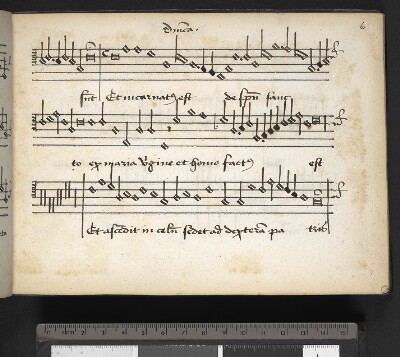 6
sūt Et incarnatꝰ est de spū sanc
to ex maria v̄gine et homo factꝰ est
Et ascēdit in celū sedet ad dexterā pa tris